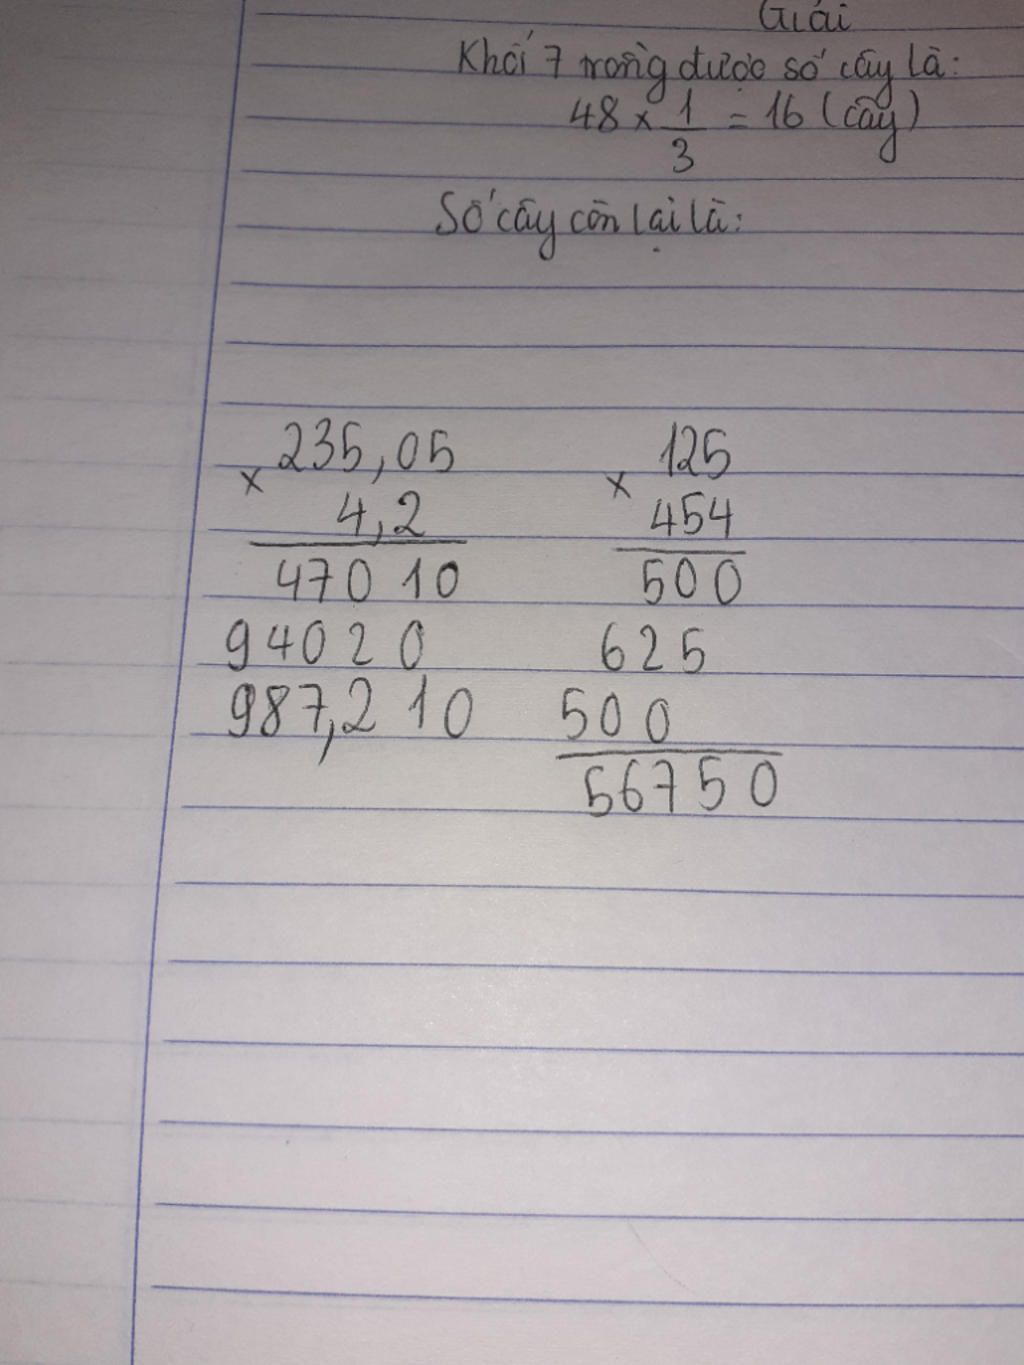 Giải
Khối 7 trồng được số cây là:
48 × 1/3 = 16 (cây)
Số cây còn lại là:
235,05
×
4,2
47010
94020
987,210
125
×
454
500
625
500
56750